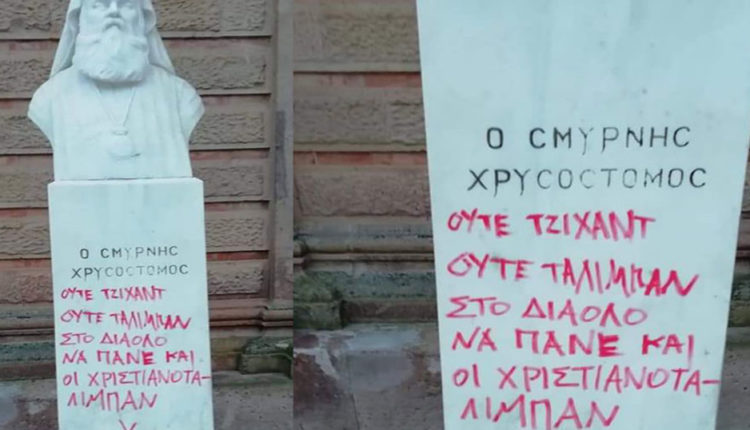 Ο CΜΥΡΝΗC
ΧΡΥCΟCΤΟΜΟC
ΟΥΤΕ ΤΖΙΧΑΝΤ
ΟΥΤΕ ΤΑΛΙΜΠΑΝ
ΣΤΟ ΔΙΑΟΛΟ
ΝΑ ΠΑΝΕ ΚΑΙ
ΟΙ ΧΡΙΣΤΙΑΝΟΤΑ-
ΛΙΜΠΑΝ
Ο CΜΥΡΝΗC
ΧΡΥCΟCΤΟΜΟC
ΟΥΤΕ ΤΖΙΧΑΝΤ
ΟΥΤΕ ΤΑΛΙΜΠΑΝ
ΣΤΟ ΔΙΑΟΛΟ
ΝΑ ΠΑΝΕ ΚΑΙ
ΟΙ ΧΡΙΣΤΙΑΝΟΤΑ-
ΛΙΜΠΑΝ